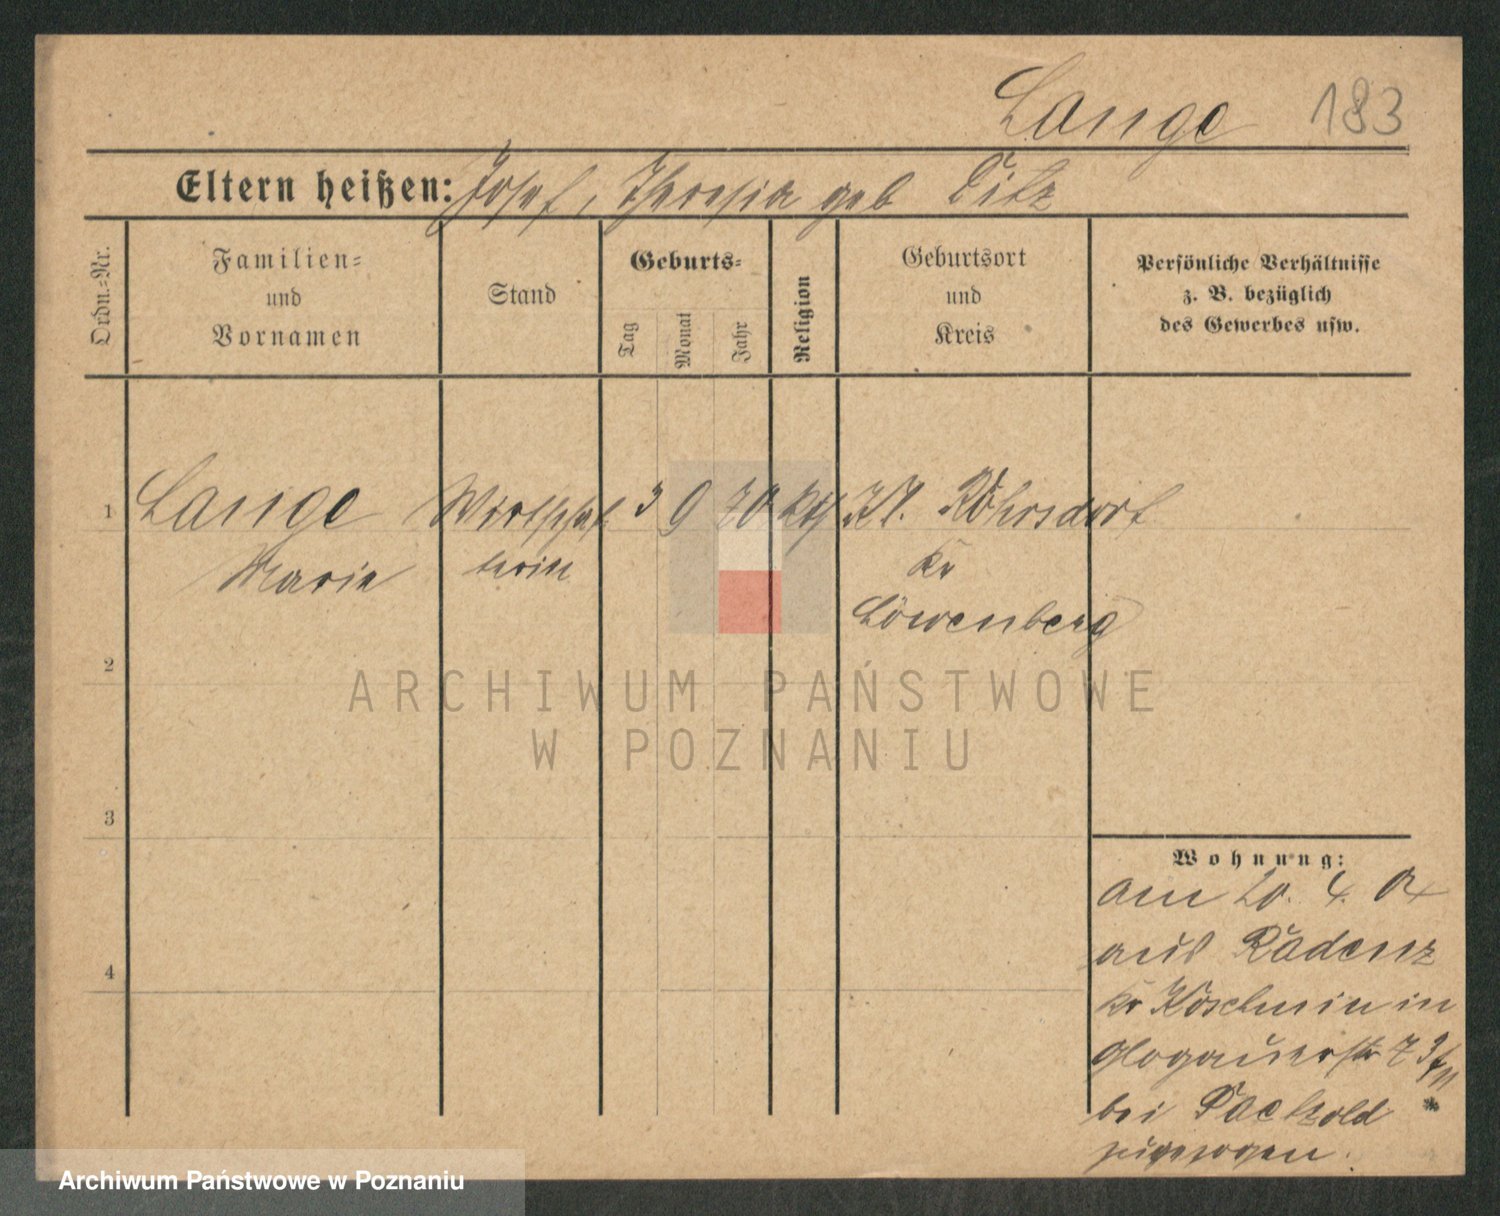 Lange 183
Eltern heißen: Josef, Theresia geb Ditz
Ordn.=Nr.
Familien=
und
Vornamen
Stand
Geburts=
Tag
Monat
Jahr
Religion
Geburtsort
und
Kreis
Persönliche Verhältnisse
z. B. bezüglich
des Gewerbes usw.
1 Lange Wirtschaf 3 9 70 kth Kl. Röhrsdorf
Marie terin Kr
Löwenberg
2
3
4
Wohnung:
am 20. 4. 04
aus Radenz
Kr Koschmin in
Glogauerstr 73
bei Paetzold
zugezogen.
ARCHIWUM PAŃSTWOWE
W POZNANIU
Archiwum Państwowe w Poznaniu